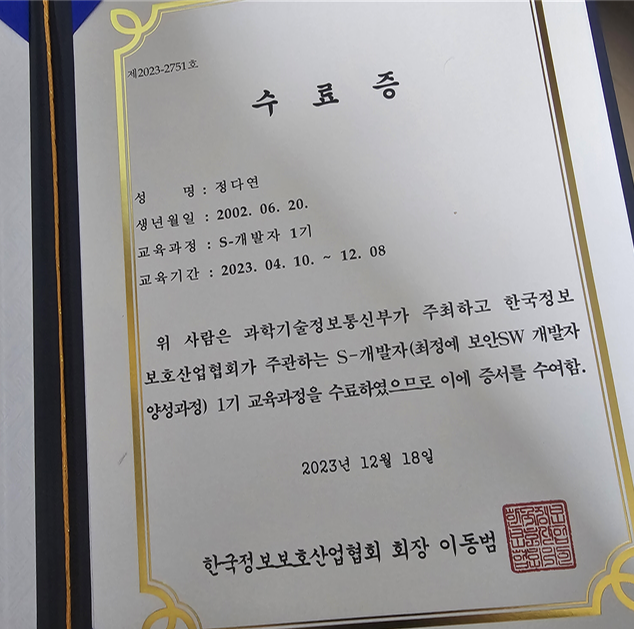 제2023-2751호
수 료 증
성 명 : 정다연
생년월일 : 2002. 06. 20.
교육과정 : S-개발자 1기
교육기간 : 2023. 04. 10. ~ 12. 08
위 사람은 과학기술정보통신부가 주최하고 한국정보
보호산업협회가 주관하는 S-개발자(최정예 보안SW 개발자
양성과정) 1기 교육과정을 수료하였으므로 이에 증서를 수여함.
2023년 12월 18일
한국정보보호산업협회 회장 이동범